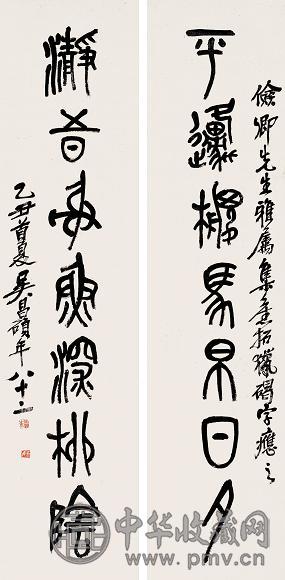 儉卿先生雅屬集舊拓獵碣字應之
平邍馬日夕
瀞魚深柳陰
乙丑首夏吳昌碩年八十二
中华收藏网
www.pmv.cn